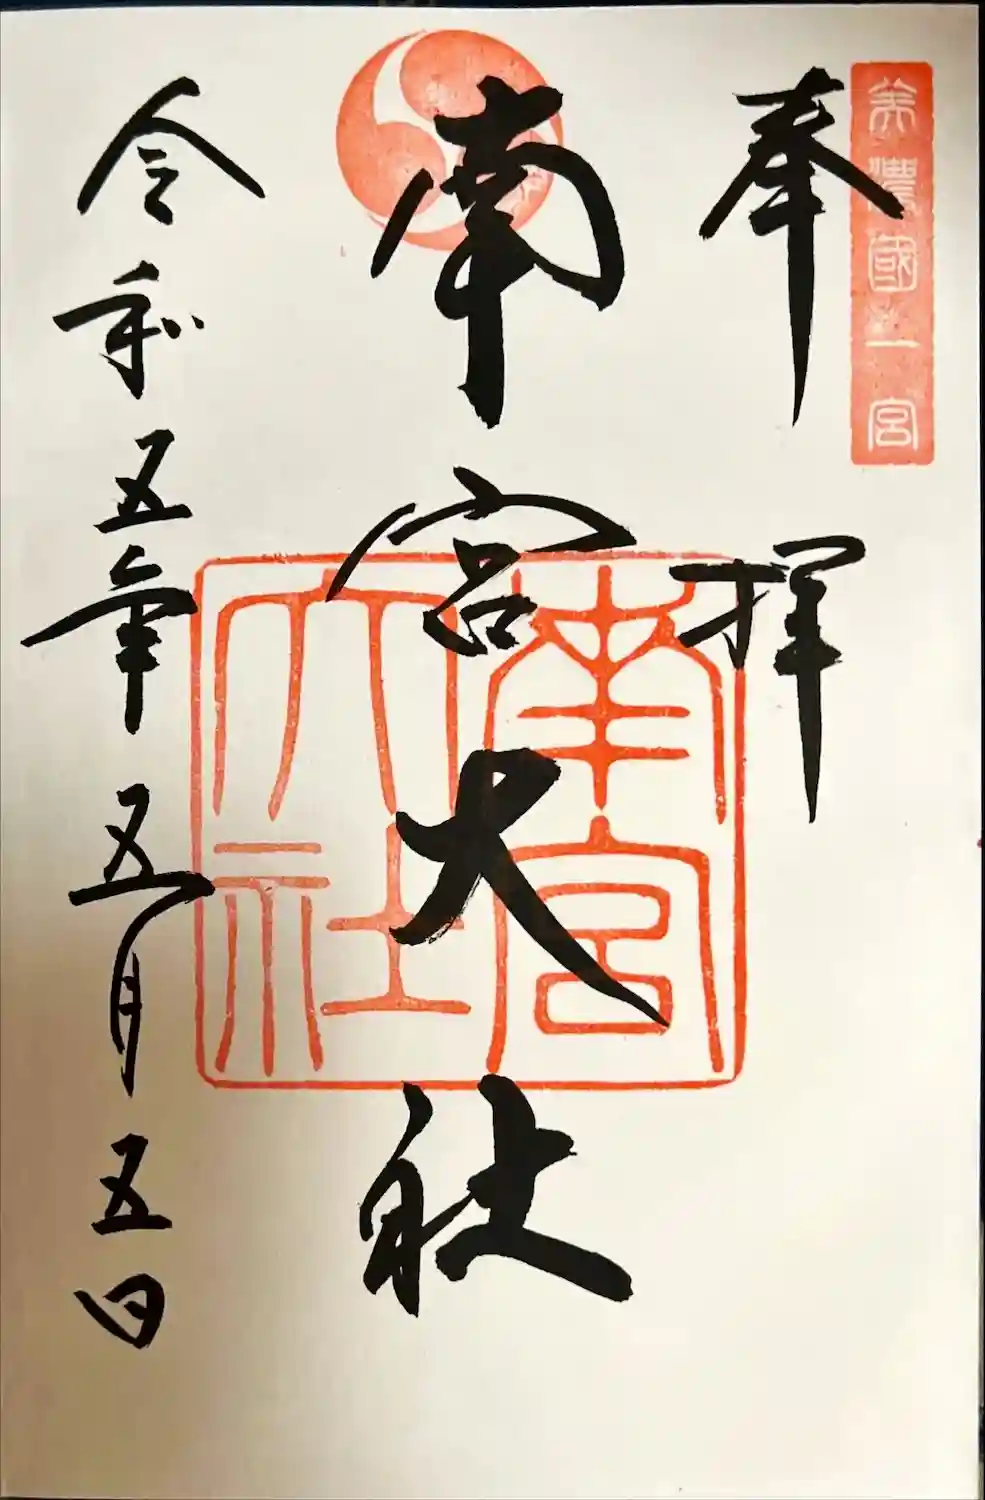 美濃國一宮
奉拝
南宮大社
南宮
大社
令和五年五月五日